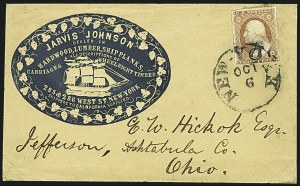 JARVIS JOHNSON
DEALER IN
HARDWOOD, LUMBER, SHIP PLANKS,
CARRIAGE & WHEELRIGHT TIMBER
255 & 256 WEST ST. NEW-YORK
NEW-YORK
OCT
6
E. W. Hickok Esqr.
Jefferson, Ashtabula Co.
Ohio.